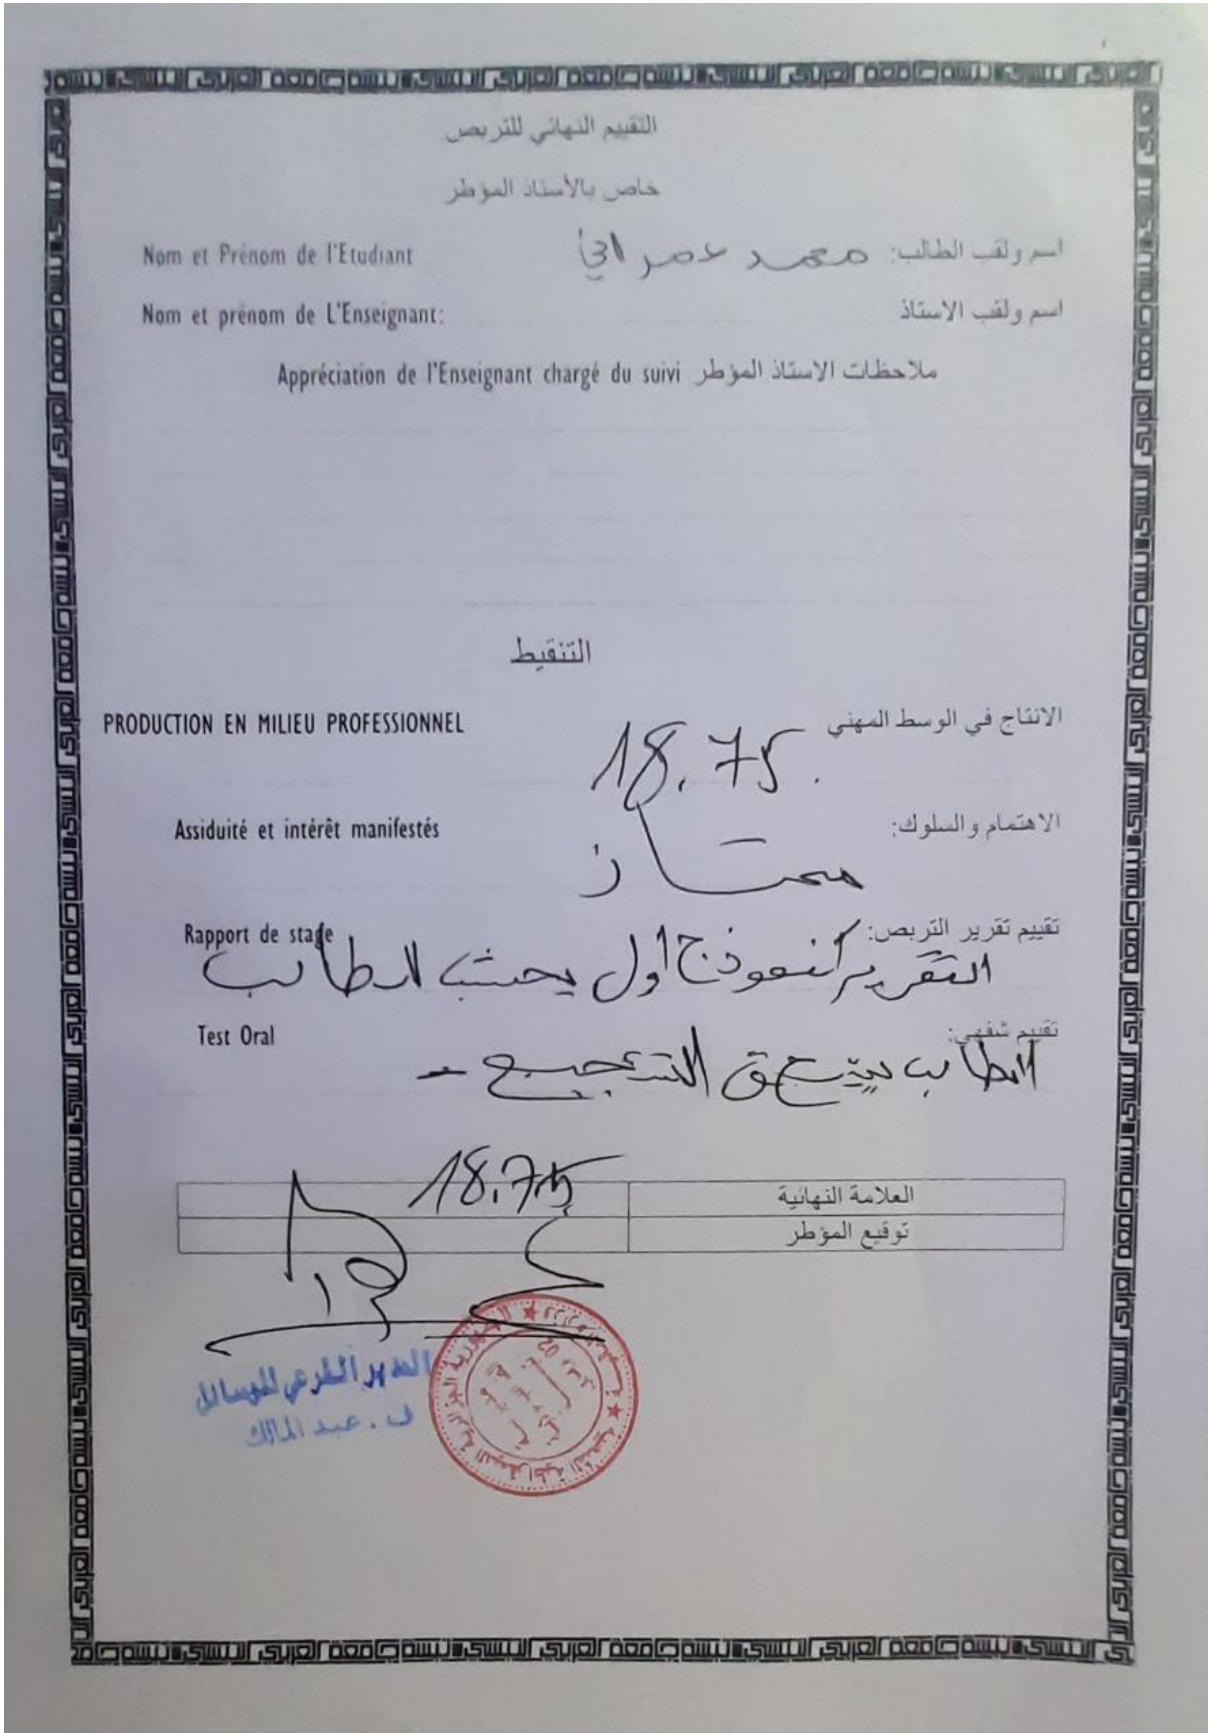 التقييم النهائي للتربص
خاص بالأستاذ المؤطر
Nom et Prénom de l'Etudiant اسم ولقب الطالب: محمد عمراني
Nom et prénom de L'Enseignant: اسم ولقب الاستاذ
Appréciation de l'Enseignant chargé du suivi ملاحظات الاستاذ المؤطر
التنقيط
PRODUCTION EN MILIEU PROFESSIONNEL الانتاج في الوسط المهني
18.75
Assiduité et intérêt manifestés الاهتمام والسلوك:
ممتاز
Rapport de stage تقييم تقرير التربص:
التقرير كنموذج أول يحسب للطالب
Test Oral تقييم شفهي:
الطالب يستحق التشجيع -
العلامة النهائية 18.75
توقيع المؤطر
المدير الفرعي للوسائل
ف. عبد المالك
الجمهورية الجزائرية الديمقراطية الشعبية